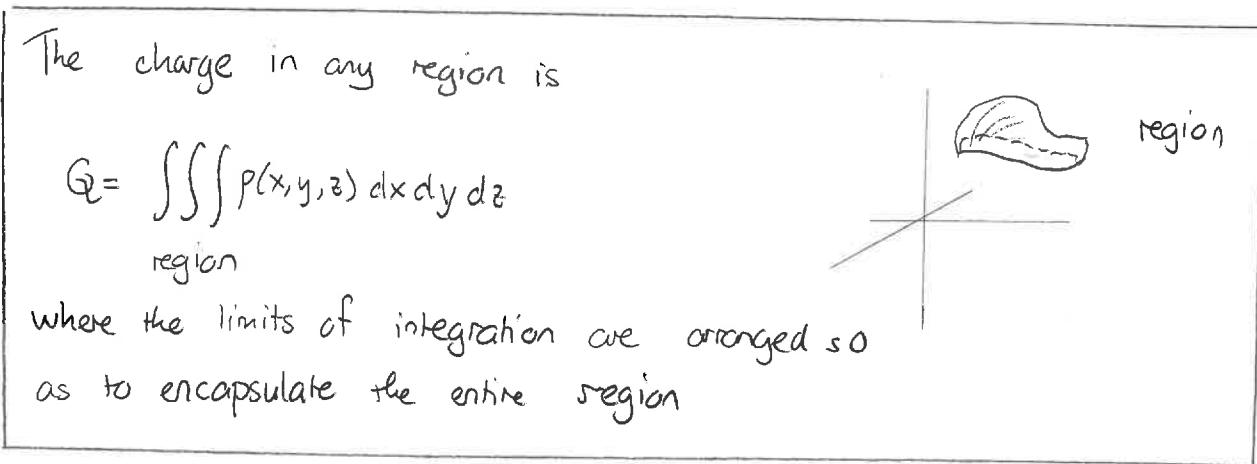 The charge in any region is
region
Q= ∭ ρ(x,y,z) dx dy dz
region
where the limits of integration are arranged so
as to encapsulate the entire region